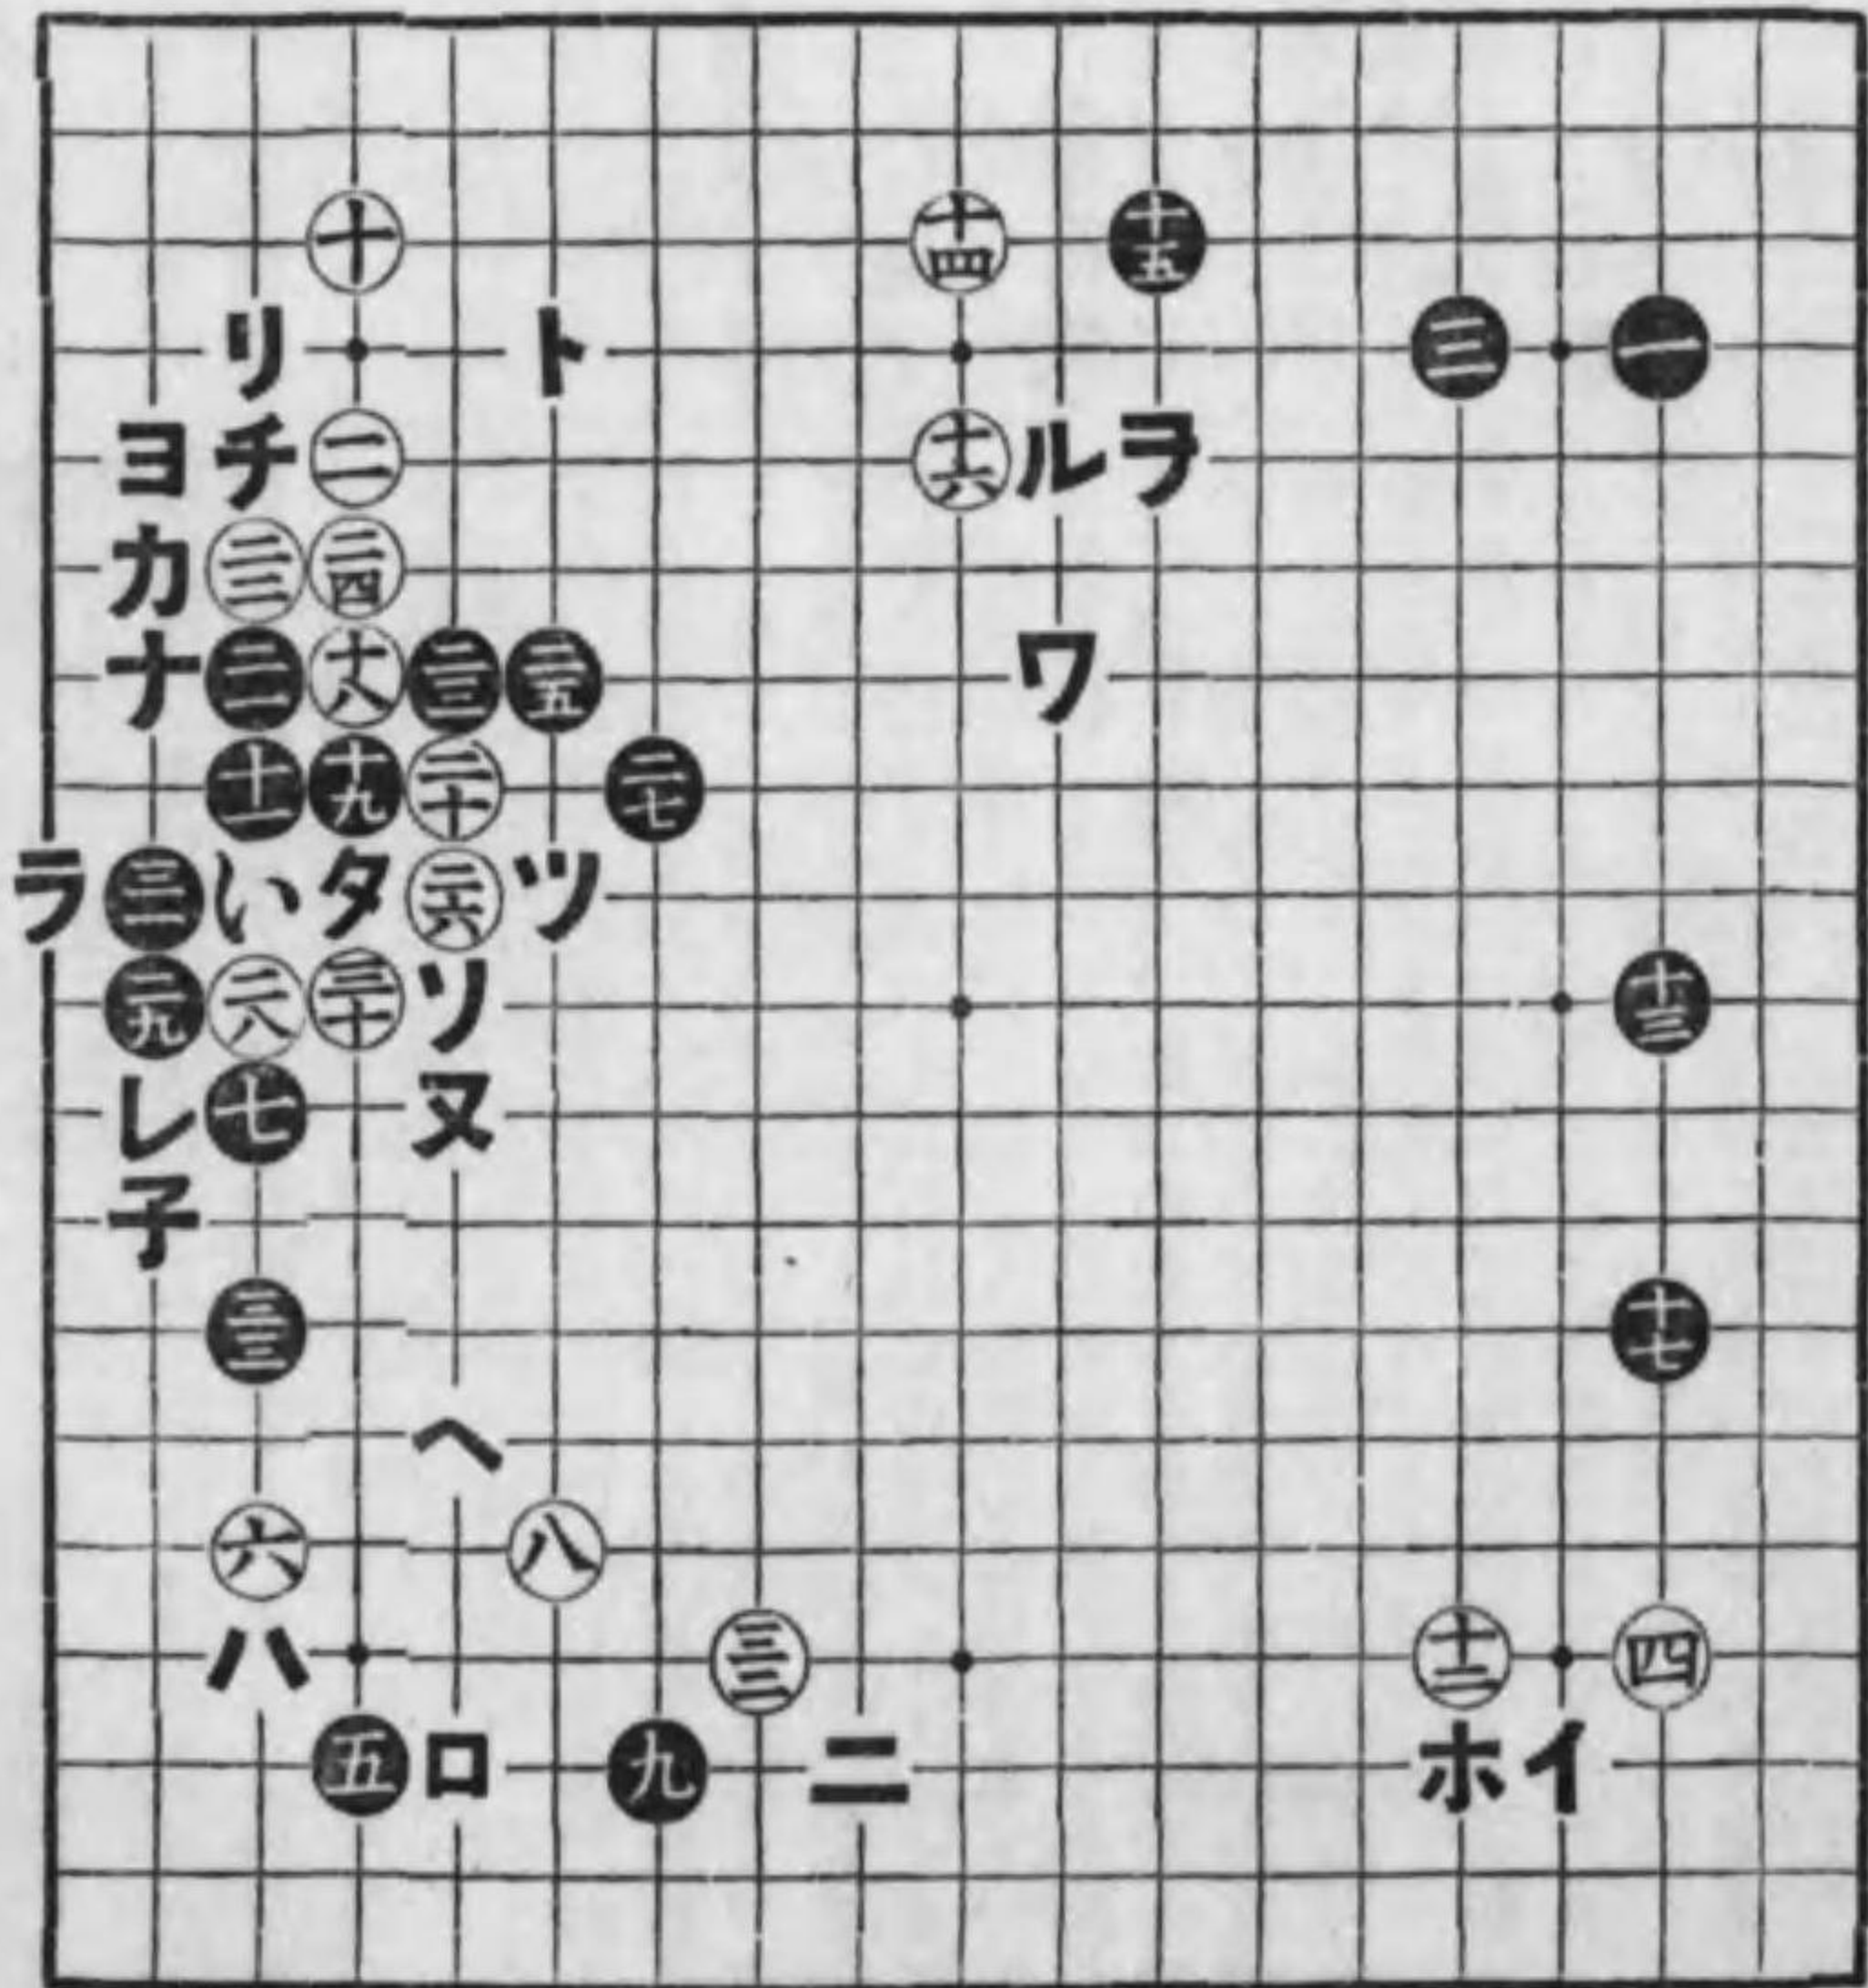 十 十四 十五
リ ト 三 一
ヨ チ 二 十六 ル ヲ
カ 二二 二四
ナ 二一 十八 二三 二五 ワ
十一 十九 二十 二七
ラ 三一 い タ 二六 ツ
二九 二八 三十 ソ 十三
レ 七 ヌ
子
三三 十七
ヘ
六 八
ハ 三二 十二 四
五 ロ 九 ニ ホ イ